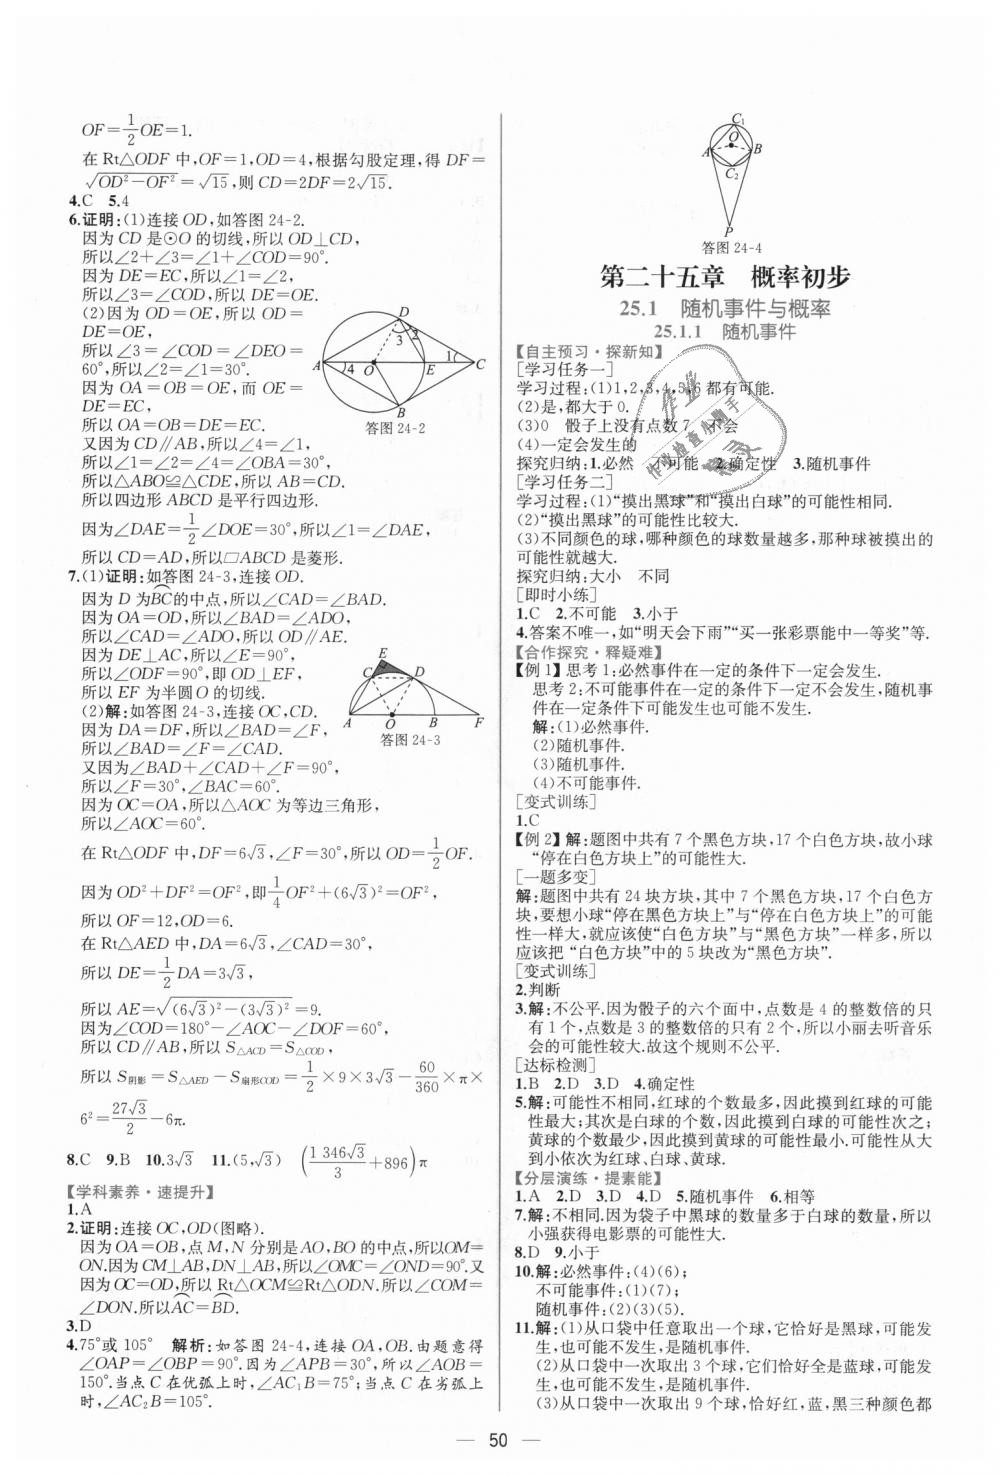 OF=1/2 OE=1.
在 Rt△ODF 中,OF=1,OD=4,根据勾股定理,得 DF=
√(OD²-OF²)=√15,则 CD=2DF=2√15.
4.C 5.4
6.证明:(1)连接 OD,如答图 24-2.
因为 CD 是⊙O 的切线,所以 OD⊥CD,
所以∠2+∠3=∠1+∠COD=90°.
因为 DE=EC,所以∠1=∠2,
所以∠3=∠COD,所以 DE=OE.
(2)因为 OD=OE,所以 OD=
DE=OE,
所以∠3=∠COD=∠DEO=
60°,所以∠2=∠1=30°.
因为 OA=OB=OE,而 OE=
DE=EC,
所以 OA=OB=DE=EC.
又因为 CD∥AB,所以∠4=∠1,
所以∠1=∠2=∠4=∠OBA=30°,
所以△ABO≌△CDE,所以 AB=CD.
所以四边形 ABCD 是平行四边形.
因为∠DAE=1/2∠DOE=30°,所以∠1=∠DAE,
所以 CD=AD,所以▱ABCD 是菱形.
D
3 2
A 4 O E 1 C
B
答图 24-2
7.(1)证明:如答图 24-3,连接 OD.
因为 D 为B͡C的中点,所以∠CAD=∠BAD.
因为 OA=OD,所以∠BAD=∠ADO,
所以∠CAD=∠ADO,所以 OD∥AE.
因为 DE⊥AC,所以∠E=90°,
所以∠ODF=90°,即 OD⊥EF,
所以 EF 为半圆 O 的切线.
(2)解:如答图 24-3,连接 OC,CD.
因为 DA=DF,所以∠BAD=∠F,
所以∠BAD=∠F=∠CAD.
又因为∠BAD+∠CAD+∠F=90°,
所以∠F=30°,∠BAC=60°.
因为 OC=OA,所以△AOC 为等边三角形,
所以∠AOC=60°.
E
C D
A O B F
答图 24-3
在 Rt△ODF 中,DF=6√3,∠F=30°,所以 OD=1/2 OF.
因为 OD²+DF²=OF²,即1/4 OF²+(6√3)²=OF²,
所以 OF=12,OD=6.
在 Rt△AED 中,DA=6√3,∠CAD=30°,
所以 DE=1/2 DA=3√3,
所以 AE=√((6√3)²-(3√3)²)=9.
因为∠COD=180°-∠AOC-∠DOF=60°,
所以 CD∥AB,所以 S△ACD=S△COD,
所以 S阴影=S△AED-S扇形COD=1/2×9×3√3-60/360×π×
6²=27√3/2-6π.
8.C 9.B 10.3√3 11.(5,√3) (1 346√3/3+896)π
【学科素养·速提升】
1.A
2.证明:连接 OC,OD(图略).
因为 OA=OB,点 M,N 分别是 AO,BO 的中点,所以OM=
ON.因为 CM⊥AB,DN⊥AB,所以∠OMC=∠OND=90°.又
因为 OC=OD,所以 Rt△OCM≌Rt△ODN.所以∠COM=
∠DON.所以A͡C=B͡D.
3.D
4.75°或 105° 解析:如答图 24-4,连接 OA,OB.由题意得
∠OAP=∠OBP=90°.因为∠APB=30°,所以∠AOB=
150°.当点 C 在优弧上时,∠AC₁B=75°;当点 C 在劣弧上
时,∠AC₂B=105°.
C₁
O
A B
C₂
P
答图 24-4
第二十五章 概率初步
25.1 随机事件与概率
25.1.1 随机事件
【自主预习·探新知】
[学习任务一]
学习过程:(1)1,2,3,4,5,6 都有可能.
(2)是,都大于 0.
(3)0 骰子上没有点数 7 不会
(4)一定会发生的
探究归纳:1.必然 不可能 2.确定性 3.随机事件
[学习任务二]
学习过程:(1)“摸出黑球”和“摸出白球”的可能性相同.
(2)“摸出黑球”的可能性比较大.
(3)不同颜色的球,哪种颜色的球数量越多,那种球被摸出的
可能性就越大.
探究归纳:大小 不同
[即时小练]
1.C 2.不可能 3.小于
4.答案不唯一,如“明天会下雨”“买一张彩票能中一等奖”等.
【合作探究·释疑难】
【例 1】思考 1:必然事件在一定的条件下一定会发生.
思考 2:不可能事件在一定的条件下一定不会发生,随机事
件在一定条件下可能发生也可能不发生.
解:(1)必然事件.
(2)随机事件.
(3)随机事件.
(4)不可能事件.
[变式训练]
1.C
【例 2】解:题图中共有 7 个黑色方块,17 个白色方块,故小球
“停在白色方块上”的可能性大.
[一题多变]
解:题图中共有 24 块方块,其中 7 个黑色方块,17 个白色方
块,要想小球“停在黑色方块上”与“停在白色方块上”的可能
性一样大,就应该使“白色方块”与“黑色方块”一样多,所以
应该把 “白色方块”中的 5 块改为“黑色方块”.
[变式训练]
2.判断
3.解:不公平.因为骰子的六个面中,点数是 4 的整数倍的只
有 1 个,点数是 3 的整数倍的只有 2 个,所以小丽去听音乐
会的可能性较大.故这个规则不公平.
[达标检测]
1.B 2.D 3.D 4.确定性
5.解:可能性不相同,红球的个数最多,因此摸到红球的可能
性最大;其次是白球的个数,因此摸到白球的可能性次之;
黄球的个数最少,因此摸到黄球的可能性最小.可能性从大
到小依次为红球、白球、黄球.
【分层演练·提素能】
1.A 2.D 3.D 4.D 5.随机事件 6.相等
7.解:不相同.因为袋子中黑球的数量多于白球的数量,所以
小强获得电影票的可能性大.
8.D 9.小于
10.解:必然事件:(4)(6);
不可能事件:(1)(7);
随机事件:(2)(3)(5).
11.解:(1)从口袋中任意取出一个球,它恰好是黑球,可能发
生,也可能不发生,是随机事件.
(2)从口袋中一次取出 3 个球,它们恰好全是蓝球,可能发
生,也可能不发生,是随机事件.
(3)从口袋中一次取出 9 个球,恰好红,蓝,黑三种颜色都
— 50 —